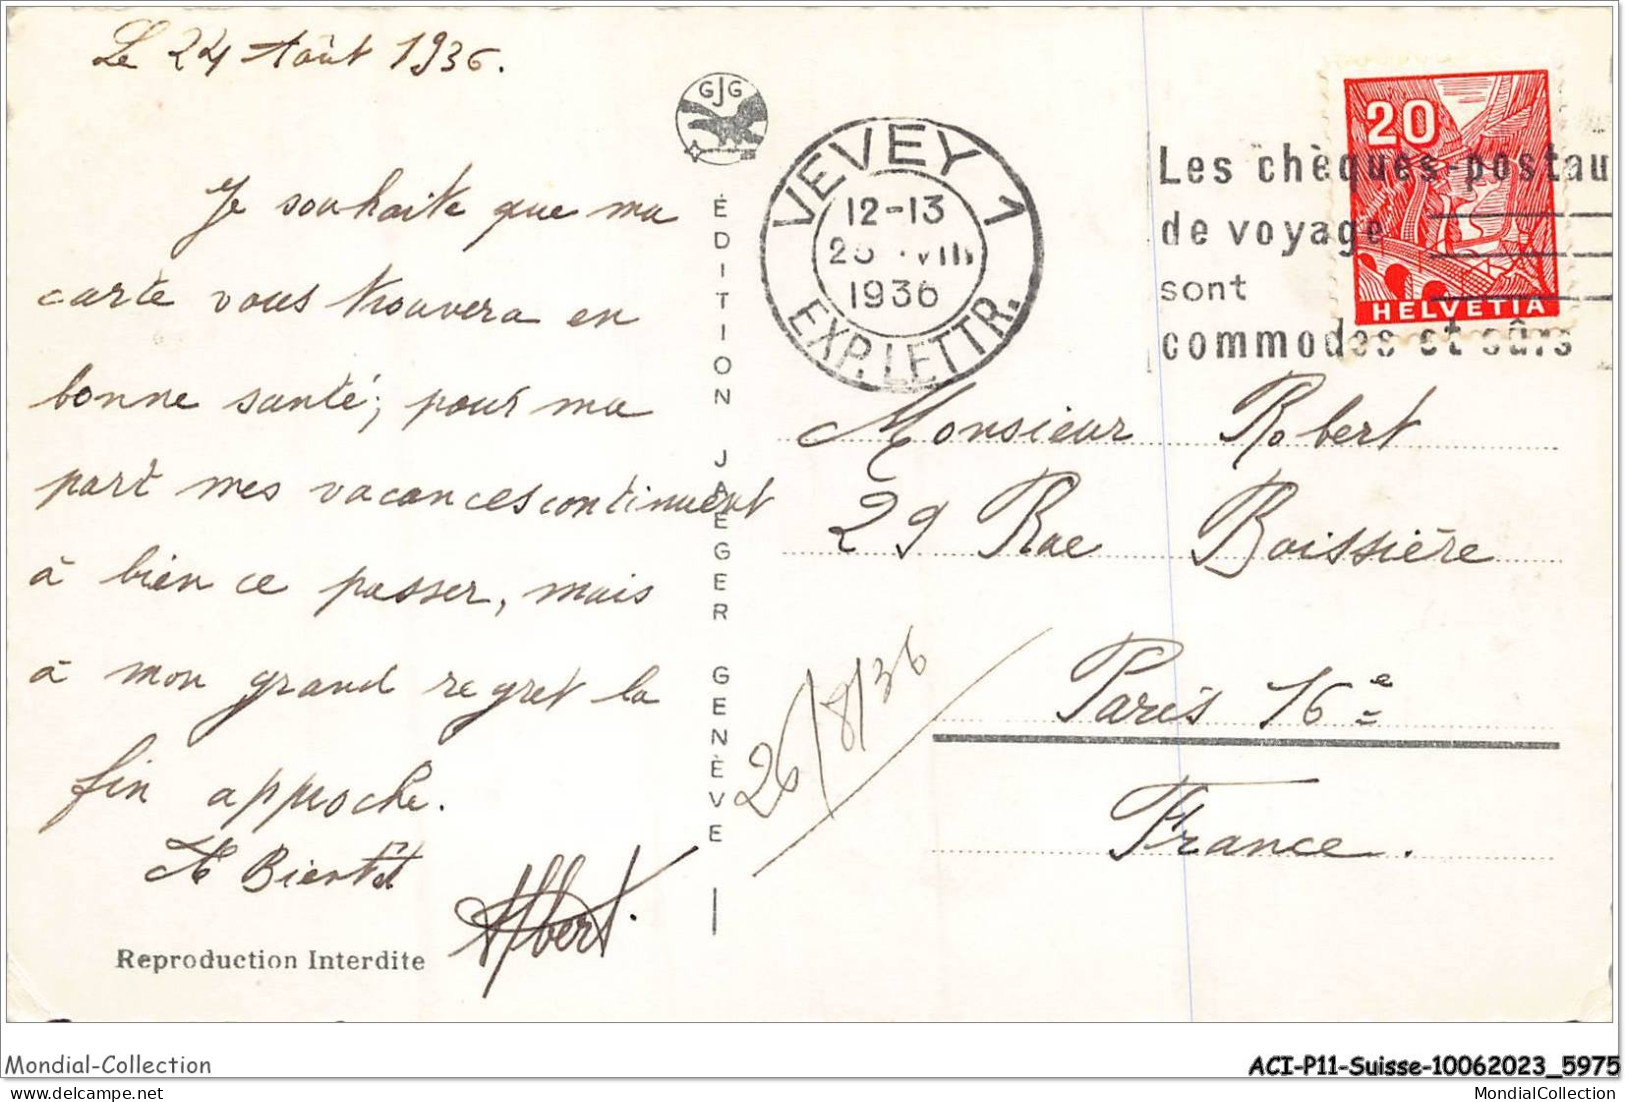 Le 24 Août 1936.
Je souhaite que ma
carte vous trouvera en
bonne santé; pour ma
part mes vacances continuent
à bien ce passer, mais
à mon grand regret la
fin approche.
A Bientôt
Albert.
Reproduction Interdite
GJG
ÉDITION JAEGER GENÈVE
VEVEY 1
12-13
25 .VIII
1936
EXP. LETTR.
Les chèques-postau
de voyage
sont
commodes et sûrs
20
HELVETIA
Monsieur Robert
29 Rue Boissière
Paris 16e
France.
26/8/36
Mondial-Collection
ACI-P11-Suisse-10062023_5975
delcampe.net
MondialCollection